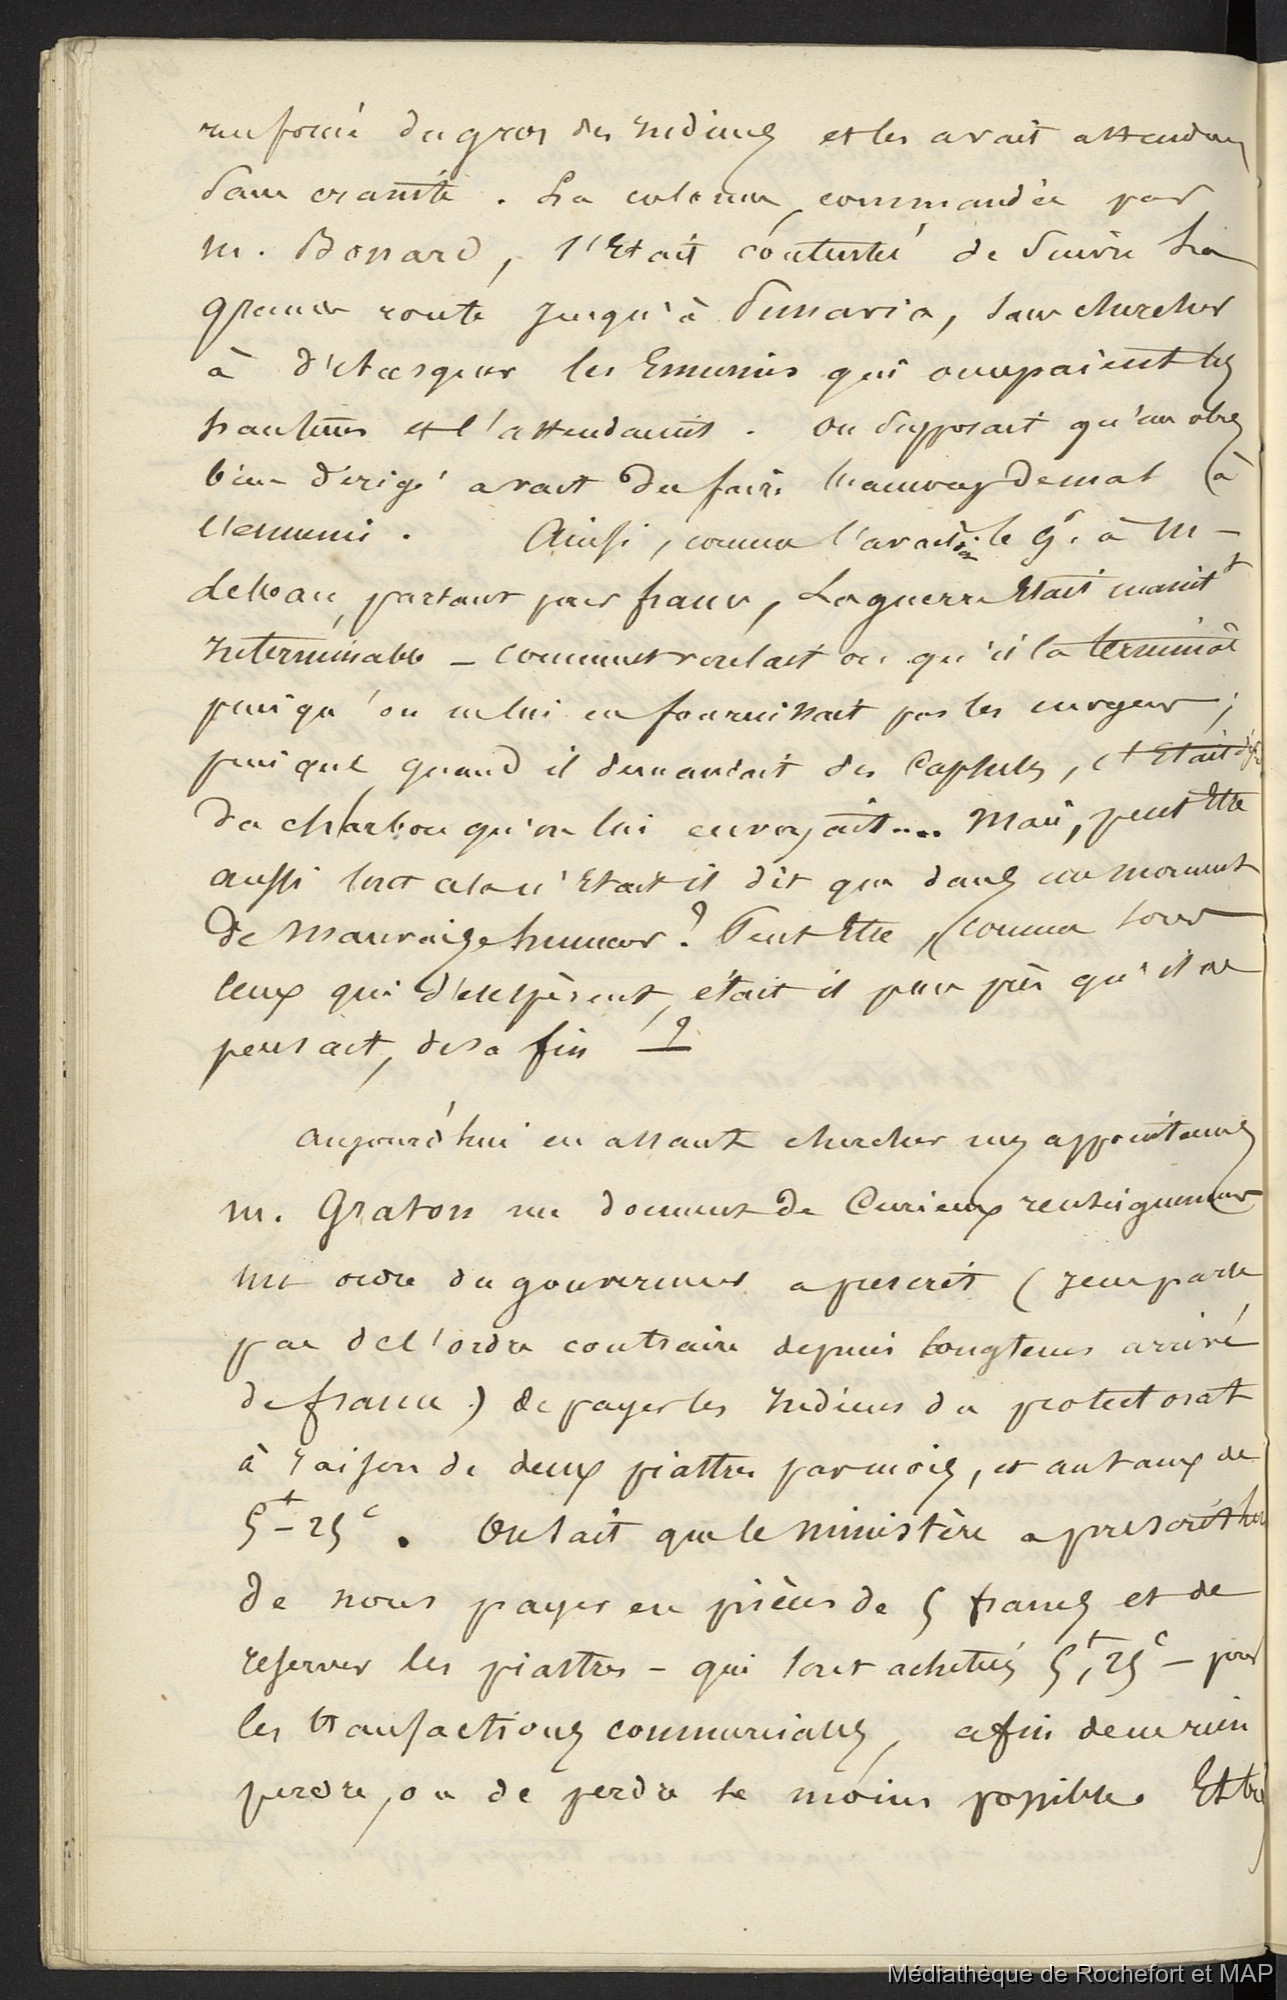 renforcé du gros des Indiens et les avait attendus
sans crainte. La colonne, commandée par
M. Bonard, s'était contentée de suivre la
grande route jusqu'à Punavia, sans chercher
à débusquer les Ennemis qui occupaient les
hauteurs et l'attendaient. On supposait qu'un obus
bien dirigé avait du faire beaucoup de mal (à
l'ennemi. Ainsi, comme l'avait dit le Gr. à M-
partant pour france, La guerre était maint t
interminable - comment voulait on qu'il la terminât
puisqu'on ne lui en fournissait pas les moyens;
puisque quand il demandait des Capsules, c'était
du charbon qu'on lui envoyait... Mais, peut être
aussi tout cela n'était il dit que dans un moment
de mauvaise humeur? Peut être, (comme tous
ceux qui désespèrent, était il plus près qu'il ne
pensait, de sa fin ?
aujourd'hui en allant chercher mes appointemens
M. Graton me donne de Curieux renseignemens
un ordre du gouverneur a prescrit (je ne parle
pas de l'ordre contraire depuis longtems arrivé
de france) de payer les Indiens du protectorat
à raison de deux piastres par mois, et au taux de
5f-25c. On sait que le ministère a prescrit
de nous payer en pièces de 5 francs et de
reserver les piastres - qui sont achetées 5f,25c - pour
les transactions commerciales, afin de ne rien
perdre, ou de perdre le moins possible. Et
Médiathèque de Rochefort et MAP